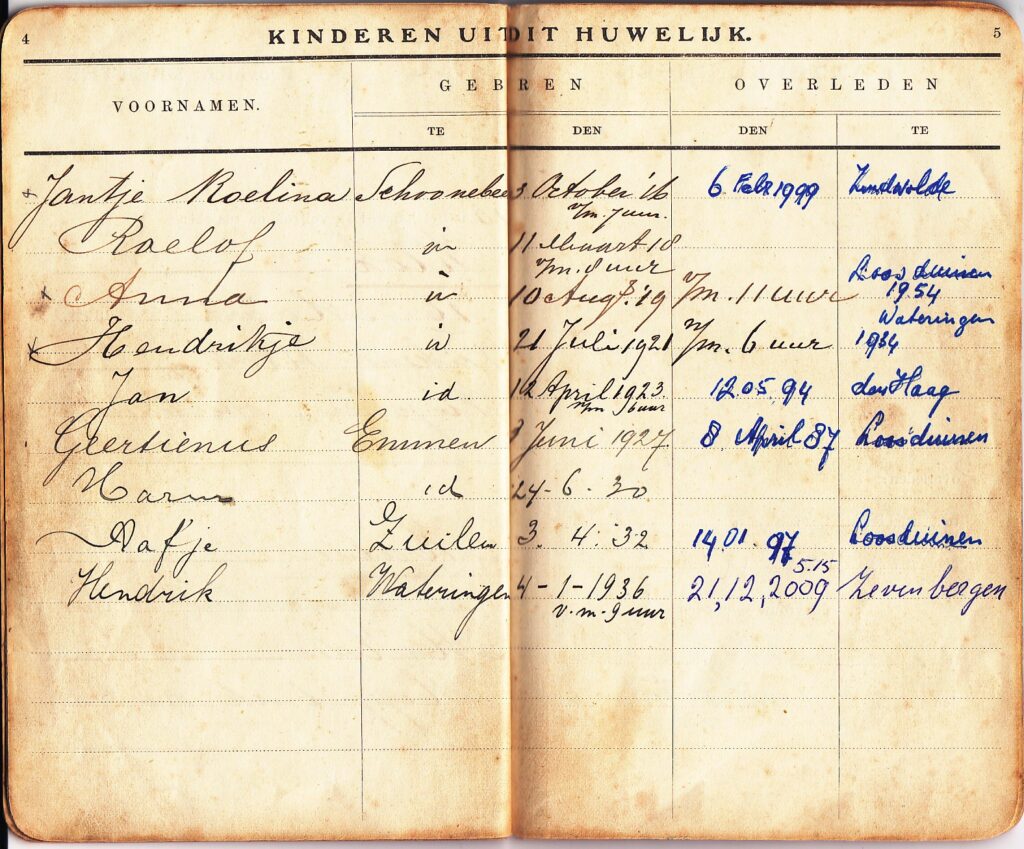 4 KINDEREN UIT DIT HUWELIJK. 5
VOORNAMEN. GEBREN OVERLEDEN
TE DEN DEN TE
Jantje Roelina Schoonebee 3 October '16 6 Febr 1999 Zuidwolde
v/m. 7 uur.
Roelof 11 Maart 18
v/m. 8 uur
Anna 10 Aug. '19 v/m. 11 uur Loosduinen
1954
Hendrikje 21 Juli 1921 n/m. 6 uur Wateringen
Jan id 12 April 1923. 12.05.94 den Haag
Geertienus Emmen Juni 1927 8 April 87 Loosduinen
Harm id 24-6.30
Aafje Zuilen 3. 4. 32 14.01.97 Loosduinen
5.15
Hendrik Wateringen 4-1-1936 21,12,2009 Zevenbergen
v.m. 9 uur